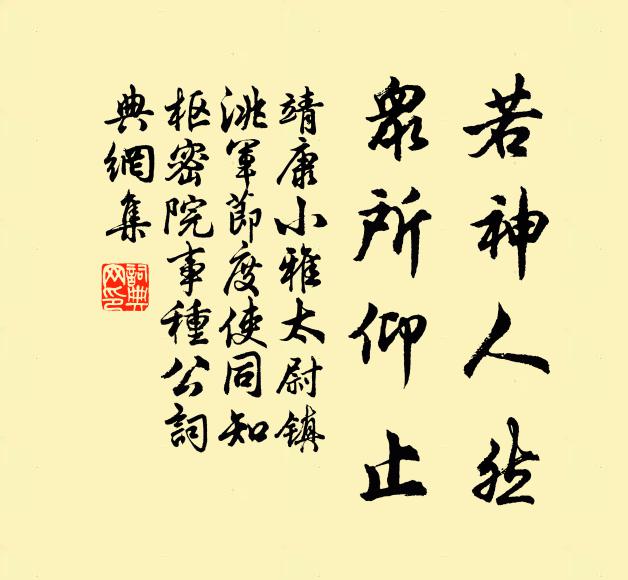 若神人然
眾所仰止
靖康小雅太尉鎮
洮軍節度使同知
枢密院事種公詞
典網集
詞典
网印